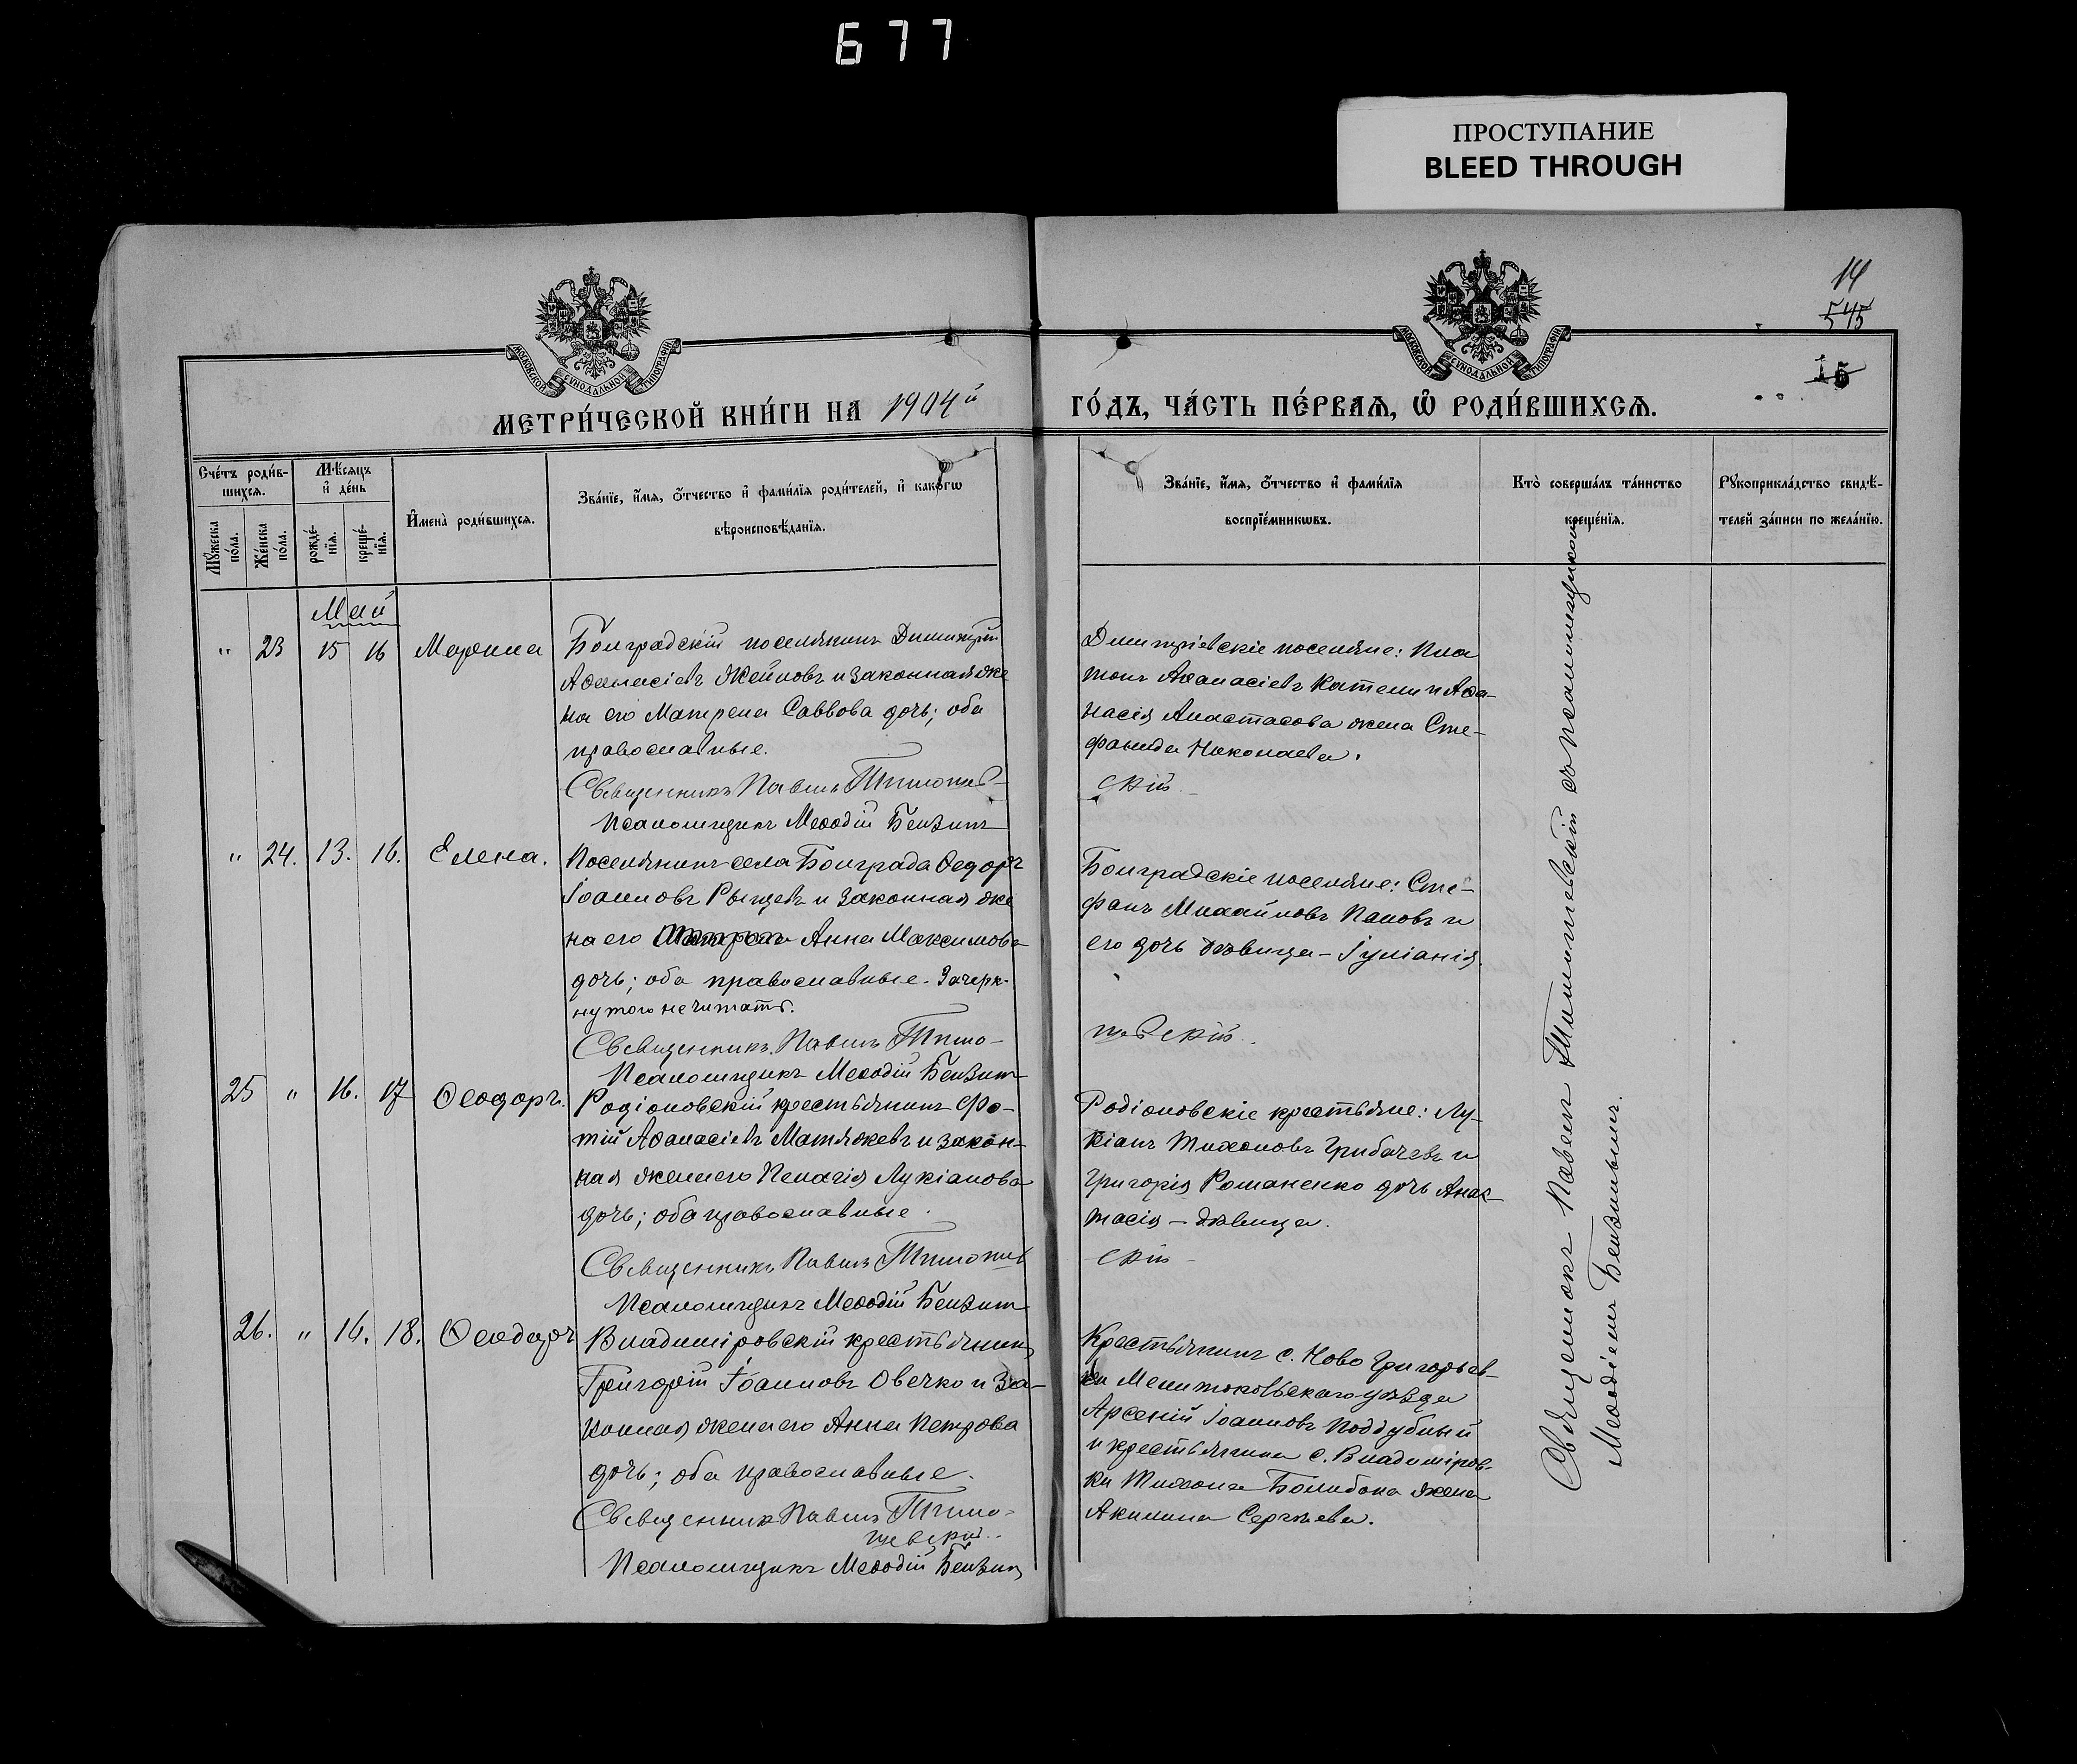 677
ПРОСТУПАНИЕ
BLEED THROUGH
14
545
15
МОСКОВСКОЙ СѴНОДАЛЬНОЙ ТИПОГРАФІИ
МОСКОВСКОЙ СѴНОДАЛЬНОЙ ТИПОГРАФІИ
МЕТРИ́ЧЕСКОЙ КНИ́ГИ НА 1904й
ГО́ДЪ, ЧА́СТЬ ПЕ́РВАѦ, Ѡ҆ РОДИ́ВШИХСѦ.
Сче́тъ роди́в-
шихсѧ.
Мꙋ́жеска по́ла.
Же́нска по́ла.
Мѣ́сѧцъ и҆ де́нь
рожде́-нїѧ.
креще́-нїѧ.
И҆мена̀ роди́вшихсѧ.
Зва́нїе, и҆́мѧ, ѻ҆́тчество и҆ фами́лїѧ роди́телей, и҆ како́гѡ
вѣроисповѣ́данїѧ.
Зва́нїе, и҆́мѧ, ѻ҆́тчество и҆ фами́лїѧ
воспрїе́мникѡвъ.
Кто̀ соверша́лъ та́инство
креще́нїѧ.
Рꙋкоприкла́дство свидѣ́-
телей за́писи по жела́нїю.
Май
" 23 15 16 Марина
Болградскій поселянинъ Димитрій
Аѳанасіевъ Жейновъ и законная же
на его Матрена Саввова дочь; оба
православные.
Священникъ Павелъ Тимошев-
скій
Псаломщикъ Меѳодій Бензинъ
Димитріевскіе поселяне: Пла
тонъ Аѳанасіевъ Кателли и Аѳа-
насія Анастасова жена Сте-
фанида Николаева.
" 24. 13. 16. Елена.
Поселянинъ села Болграда Ѳедоръ
Іоанновъ Рыщевъ и законная же
на его Матрона Анна Максимова
дочь; оба православные. Зачерк-
нутого не читать.
Священникъ Павелъ Тимо-
шевскій.
Псаломщикъ Меѳодій Бензинъ
Болградскіе поселяне: Сте-
фанъ Михайловъ Пановъ и
его дочь дѣвица - Іуліанія.
25 " 16. 17 Ѳеодоръ.
Родіоновскій крестьянинъ Фо-
тій Аѳанасіевъ Матяжевъ и закон-
ная жена его Пелагія Лукіанова
дочь; оба православные.
Священникъ Павелъ Тимошев
скій
Псаломщикъ Меѳодій Бензинъ
Родіоновскіе крестьяне: Лу-
кіанъ Тихоновъ Грибачевъ и
Григорія Романенко дочь Анас-
тасія - дѣвица.
26. " 16. 18. Ѳеодоръ
Владиміровскій крестьянинъ
Григорій Іоанновъ Овечко и за-
конная жена его Анна Петрова
дочь; оба православные.
Священникъ Павелъ Тимо-
шевскій.
Псаломщикъ Меѳодій Бензинъ
Крестьянинъ с. Ново Григорьев-
ки Мелитопольскаго уѣзда
Арсеній Іоанновъ Поддубный
и крестьянина с. Владиміров-
ки Тихона Болибока жена
Акилина Сергѣева.
Священникъ Павелъ Тимошевскій съ псаломщикомъ
Меѳодіемъ Бензинымъ.